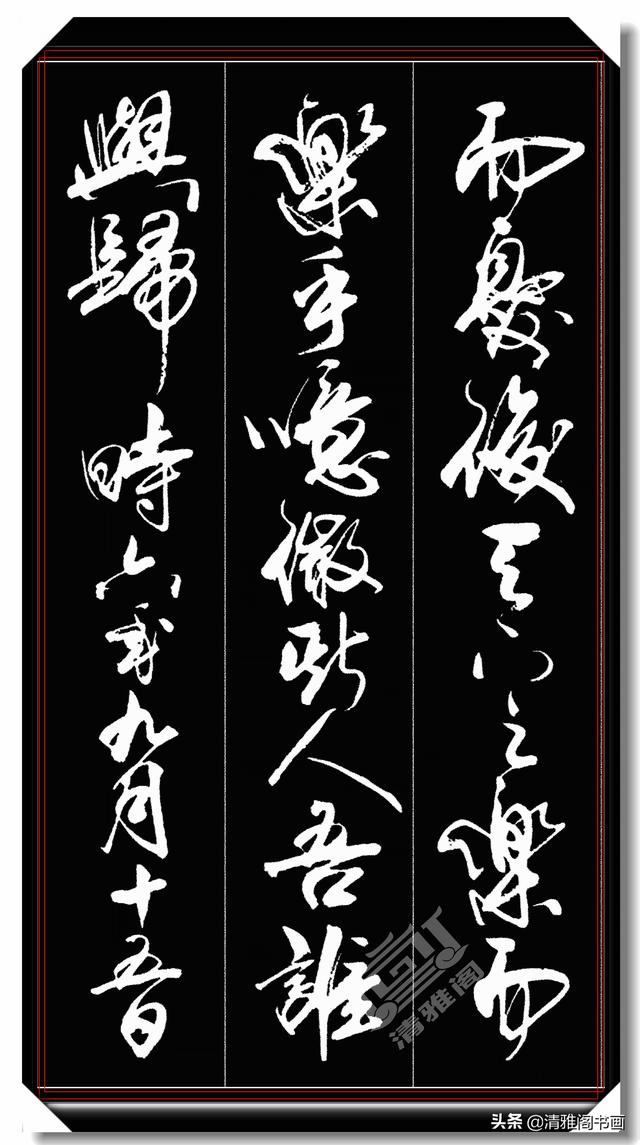 而憂後天下之樂而
樂乎噫微斯人吾誰
與歸時六年九月十五日
清雅阁
头条 @清雅阁书画